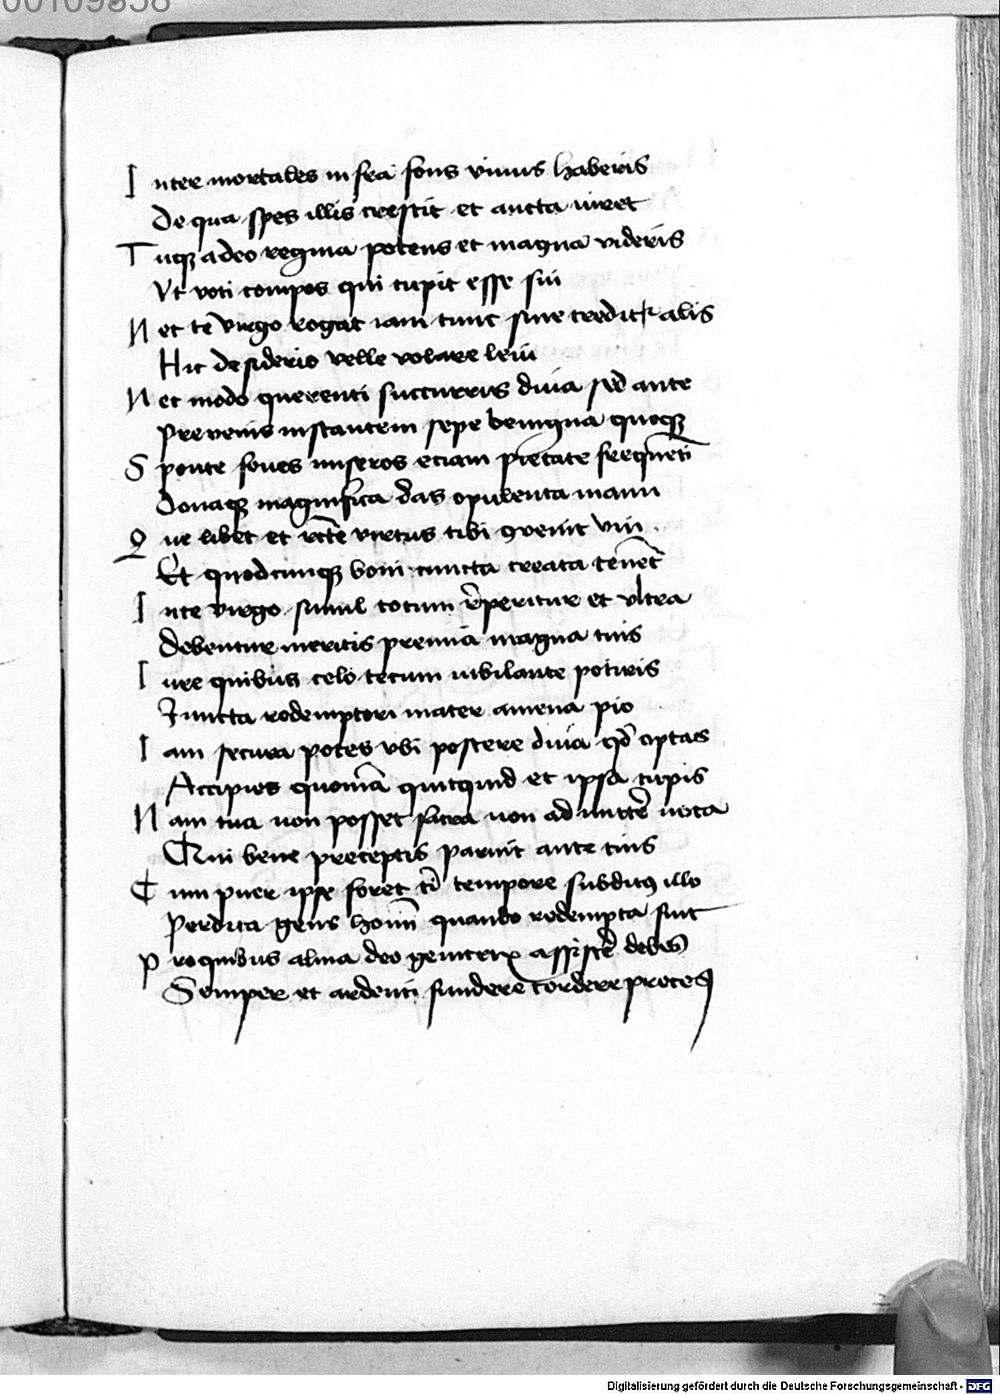 00109338
Inter mortales in fra fons viuus haberis
De qua spes illis crescit et aucta viret
Tuqꝫ adeo regina potens et magna videris
Vt voti compos qui cupit esse sui
Nec te virgo rogat iam tunc sine creditr alis
Hic desiderio velle volare leui
Nec modo querenti succurris diua sed ante
Preuenis instantem sepe benigna quoqꝫ
Sponte foues miseros eciam pietate frequenti
Donaqꝫ magnifica das opulenta manu
Que libet et recte virtus tibi ꝯuenit vni
Et quodcunqꝫ boni cuncta creata tenet
In te virgo simul totum reperitur et vltra
Debentur meritis premia magna tuis
Iure quibus celo tecum iubilante potiris
Iuncta redemptori mater amena pio
Iam secura potes vbi poscere diua qd optas
Accipies quoniā quicquid et ipsa cupis
Nam tua non posset sacra non admittere vota
Qui bene preceptis paruit ante tuis
Cum puer ipse foret tibi tempore subditꝰ illo
Perdita gens homīn quando redempta fuit
Pro quibus alma deo genitrix assistere debes
Semper et ardenti fundere corde preces
Digitalisierung gefördert durch die Deutsche Forschungsgemeinschaft - DFG